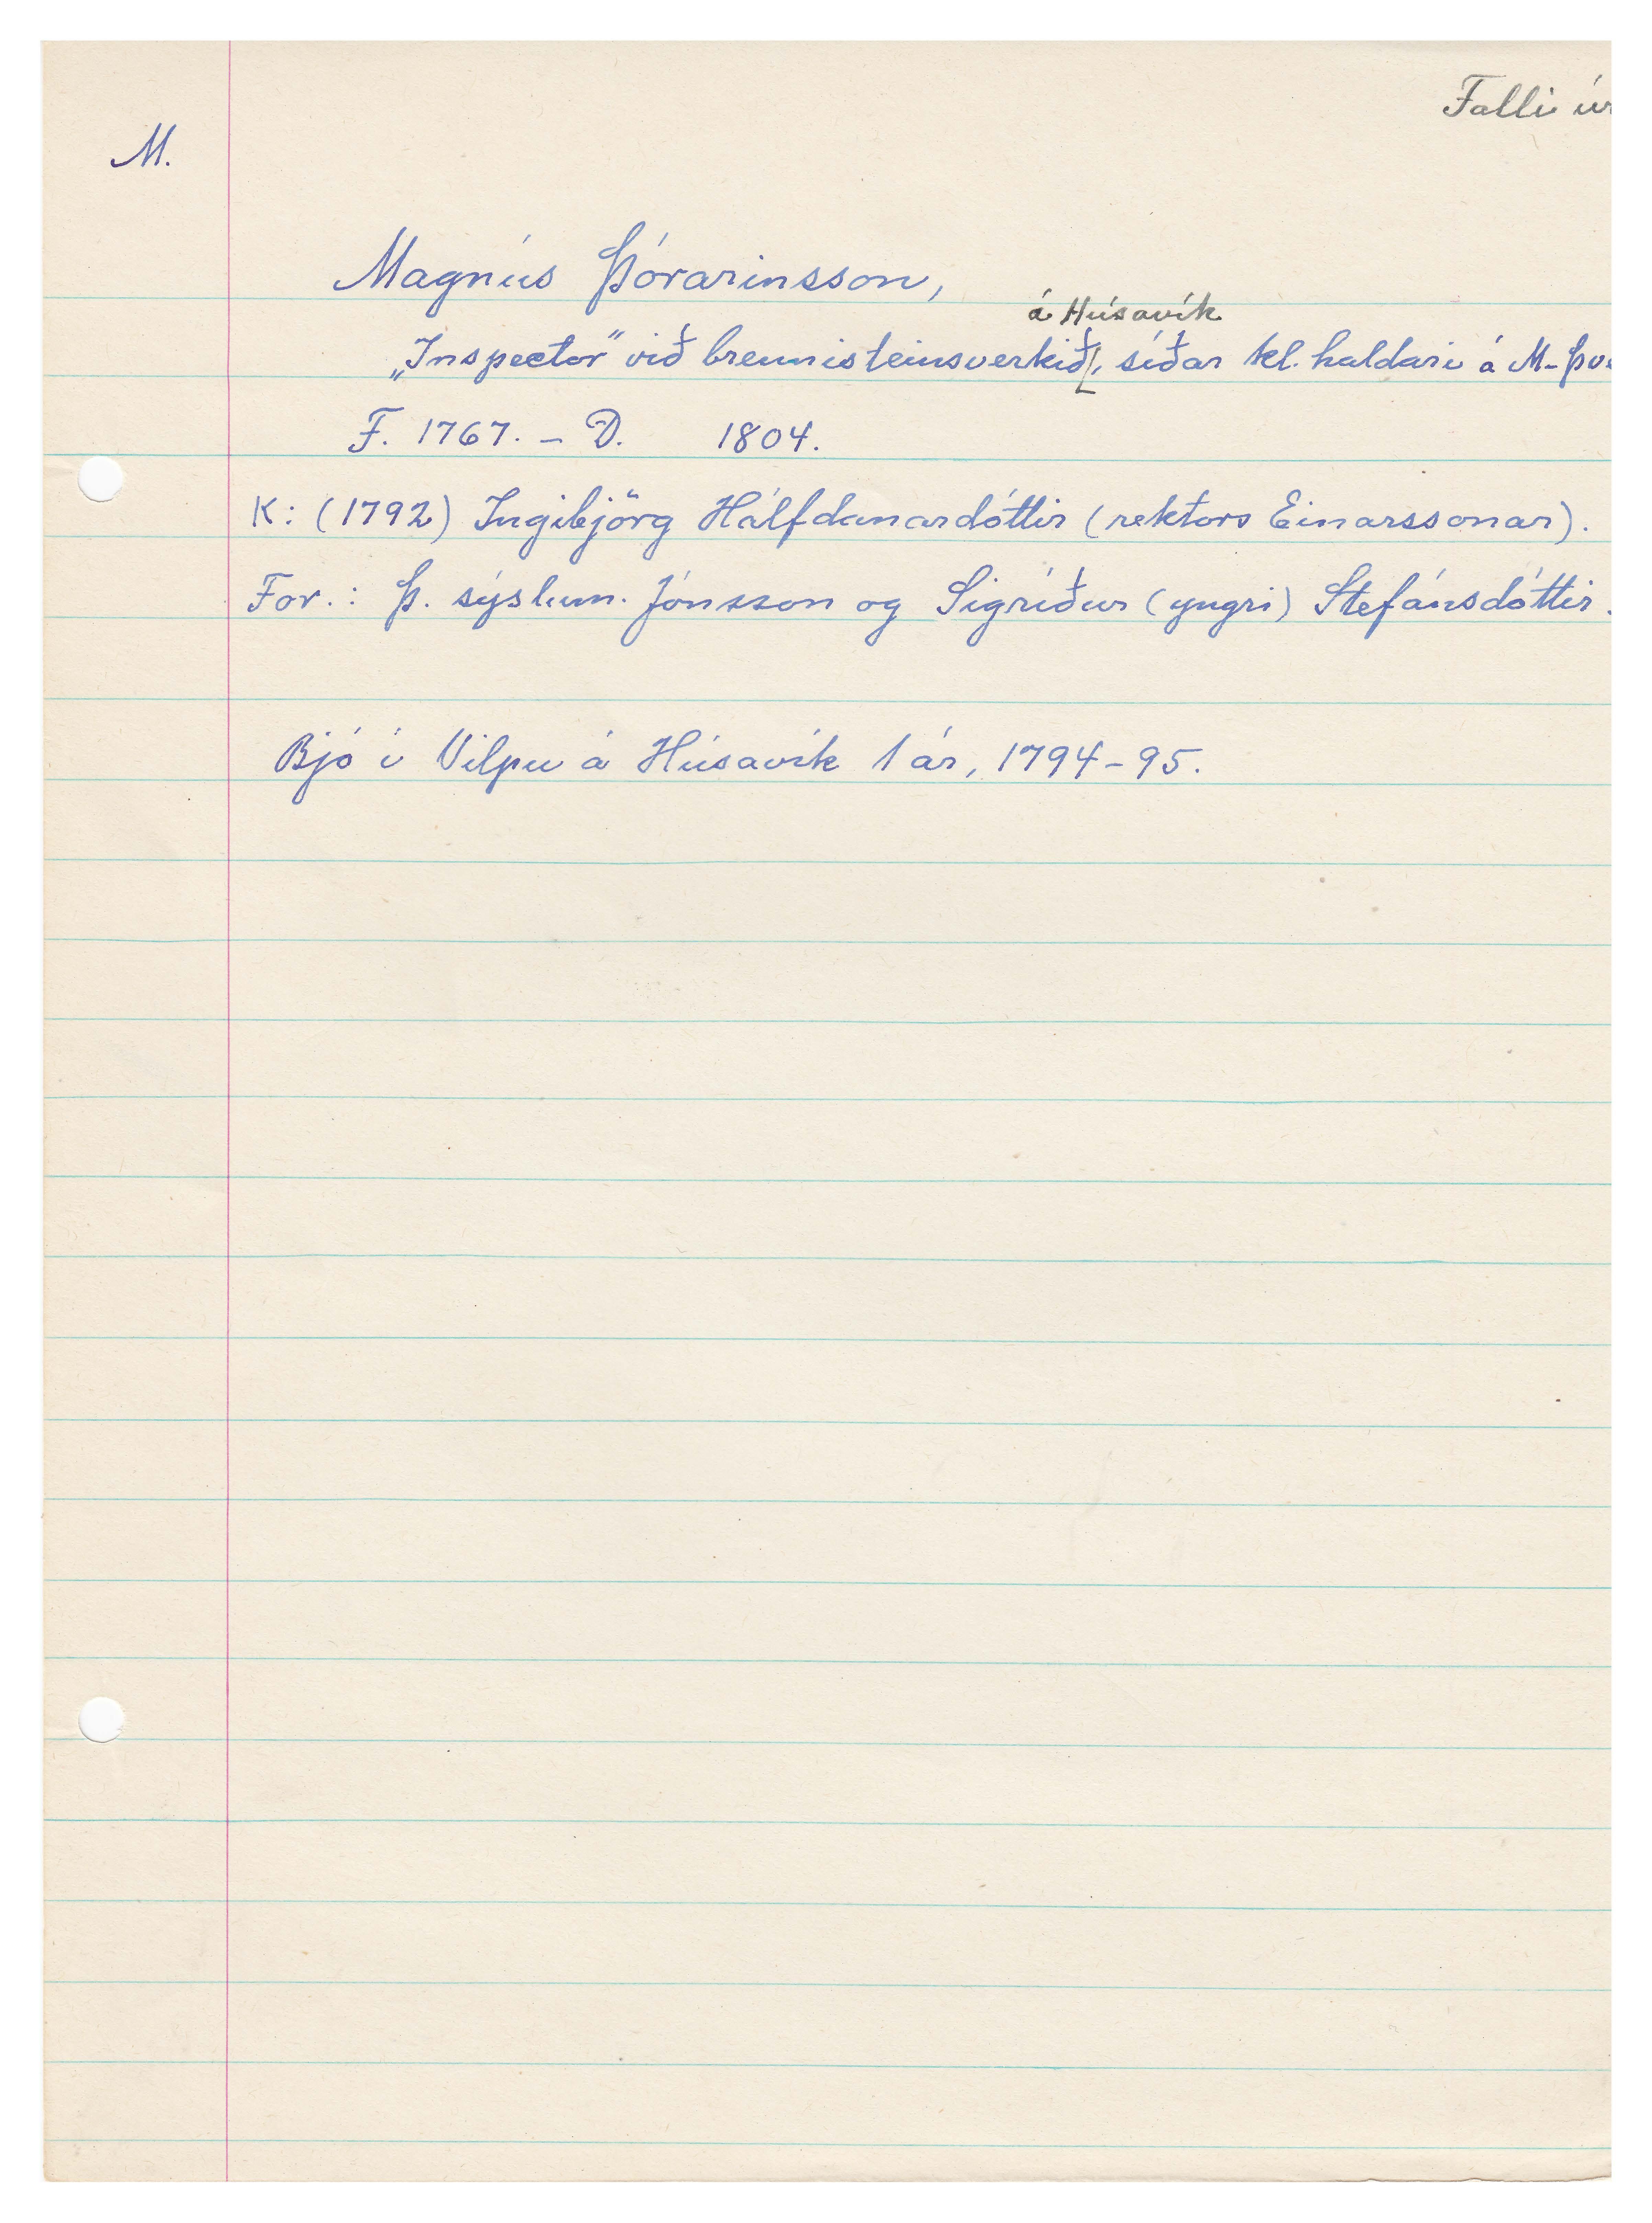 Falli úr
M.
Magnús Þórarinsson,
á Húsavík
„Inspector" við brennisteinsverkið, síðar kl. haldari á M-Þv
F. 1767. - D. 1804.
K: (1792) Ingibjörg Hálfdanardóttir (rektors Einarssonar).
For.: Þ. sýslum. Jónsson og Sigríður (yngri) Stefánsdóttir.
Bjó í Vilpu á Húsavík 1 ár, 1794-95.